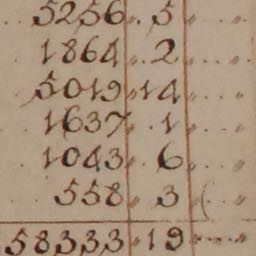 5256 „ 5 „ „
1864 „ 2 „ „
5019 „ 14 „ „
1637 „ 1 „ „
1043 „ 6 „ „
558 „ 3 „ „
58333 „ 19 „ „